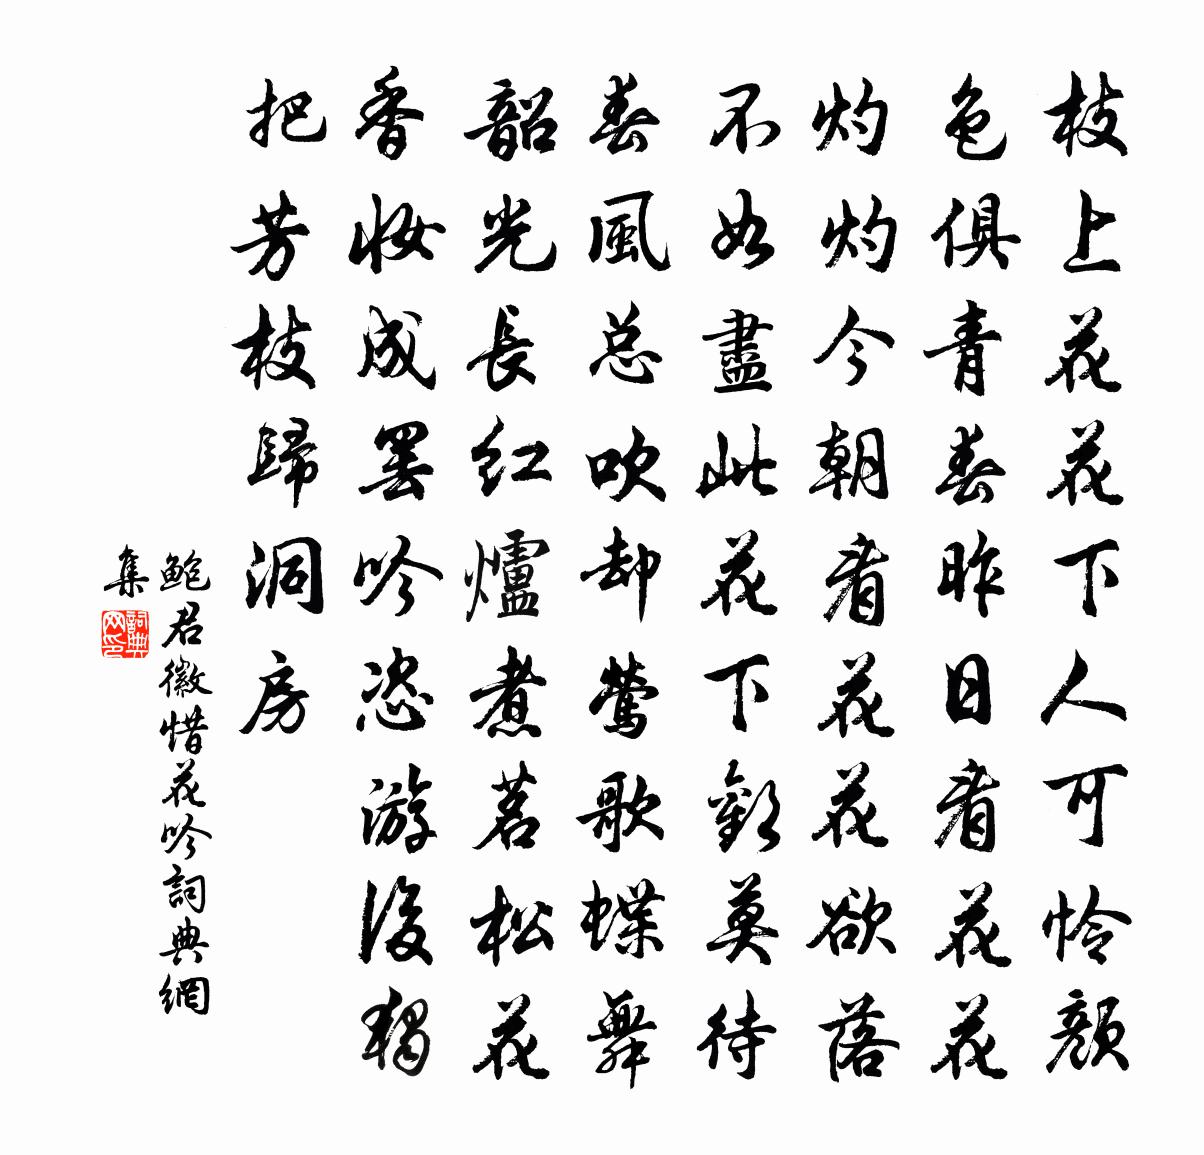 枝上花花下人可怜顏
色俱青春昨日看花花
灼灼今朝看花花欲落
不如盡此花下歡莫待
春風总吹却鶯歌蝶舞
韶光長红爐煮茗松花
香妝成罢吟恣游後獨
把芳枝歸洞房
鮑君徽惜花吟詞典網
集
詞典
网印